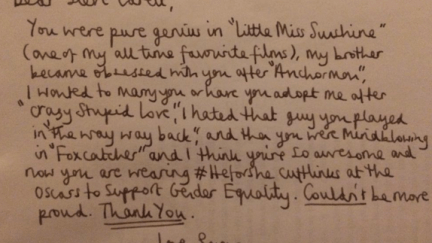 Dear Steve Carell,
You were pure genius in "Little Miss Sunshine"
(one of my all time favourite films), my brother
became obsessed with you after "Anchorman",
I wanted to marry you or have you adopt me after
"Crazy Stupid Love", I hated that guy you played
in "The way way back", and then you were Mindblowing
in "Foxcatcher" and I think you're so awesome and
now you are wearing #Heforshe cufflinks at the
Oscars to Support Gender Equality. Couldn't be more
proud. Thank You.